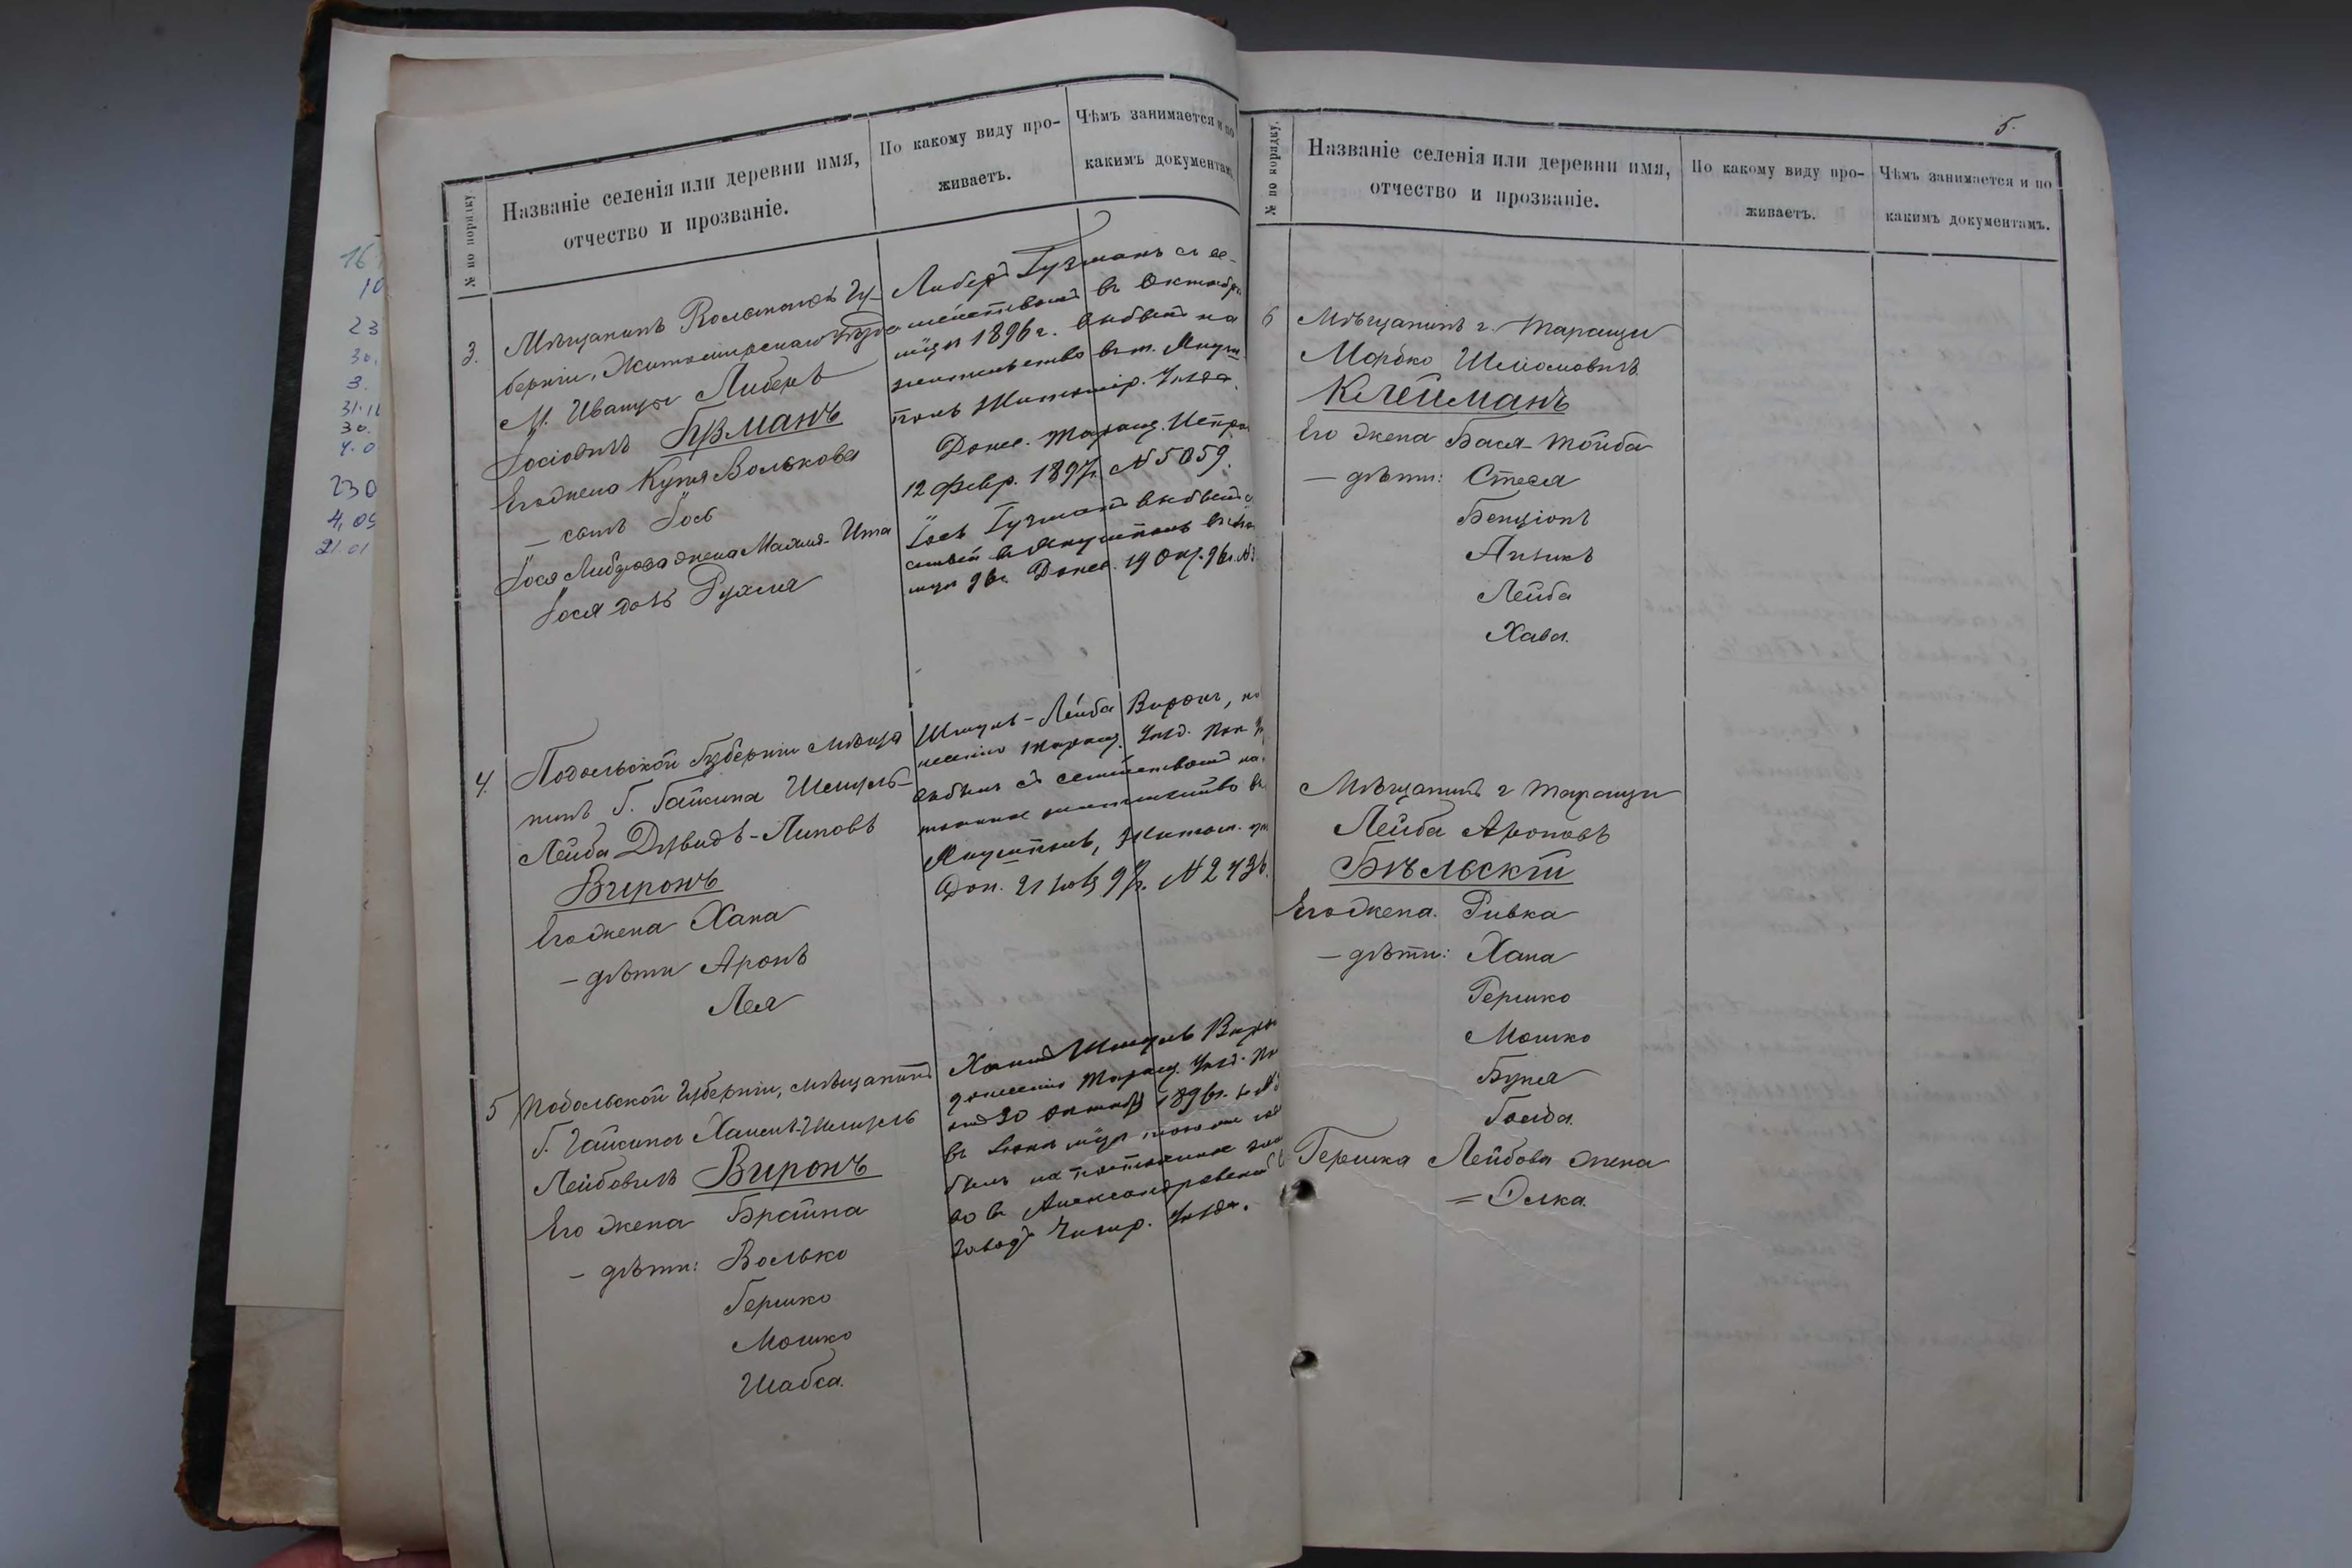 16
10
23
30.
3.
31.
30.
4.0
230
4,05
21.01
№ по порядку.
Названіе селенія или деревни имя,
отчество и прозваніе.
По какому виду про-
живаетъ.
Чѣмъ занимается и по
какимъ документамъ
3. Мѣщанинъ Волынской Гу-
берніи, Житомирскаго Уѣзда
М. Иванц Либеръ
Іосіовичъ Гузманъ
Его жена Куня Волькова
— сынъ Іось
Іося Либерова жена Малня-Ита
Іося дочь Рухля
Либеръ Гузманъ съ се-
мействомъ въ Октябрѣ
мцѣ 1896 г. выбылъ на
жительство въ м. Януш
поль Житомір. Уѣзда.
Донес. Таращ. Испра
12 Февр. 1897 г. № 5059.
Іось Гузманъ выбылъ с
семьей въ Янушполь въ
мцѣ 96 г. Донес. 19 Окт. 96 г. №
4. Подольской Губерніи мѣща
нинъ Г. Гайсина Шмуль-
Лейба Дувидъ-Липовъ
Виронъ
Его жена Хана
— дѣти Аронъ
Лея
Шмуль-Лейба Виронъ, по
несенію Таращ. Уѣзд. Пол. У
выбылъ съ семействомъ на
тоянное жительство въ
Янушполь, Житом. у
Дон. 21 97 г. № 2736.
5 Подольской Губерніи, мѣщанинъ
Г. Гайсина Хаимъ-Шмуль
Лейбовичъ Виронъ
Его жена Брайна
— дѣти: Волько
Гершко
Мошко
Шабса.
Хаимъ Шмуль Виро
донесенію Таращ. Уѣзд. По
отъ 30 Октября 1896 г. за №
въ Іюнѣ мцѣ того же го
былъ на постоянное жи
во въ Александровскій
заводъ Чигир. Уѣзда.
5.
№ по порядку.
Названіе селенія или деревни имя,
отчество и прозваніе.
По какому виду про-
живаетъ.
Чѣмъ занимается и по
какимъ документамъ.
6 Мѣщанинъ г. Таращи
Мордко Шліомовичъ
Клейманъ
Его жена Бася-Тойба
— дѣти: Стеся
Бенціонъ
Аизикъ
Лейба
Хава.
Мѣщанинъ г Таращи
Лейба Ароновъ
Бѣльскій
Его жена. Ривка
— дѣти: Хана
Гершко
Мошко
Буня
Голда.
Гершка Лейбова жена
= Элка.